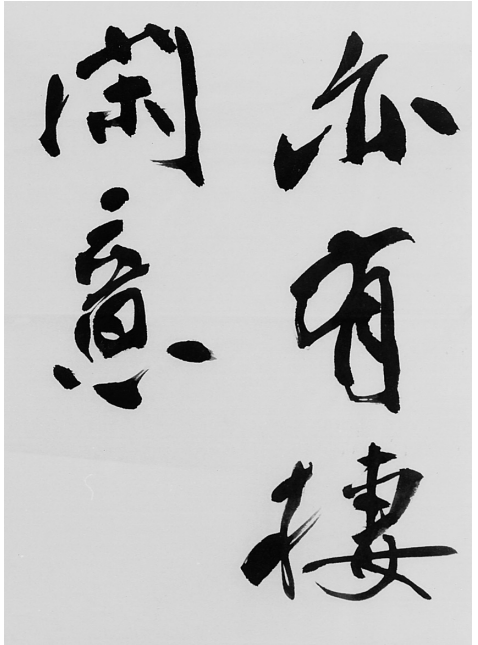 亦有棲
閑意